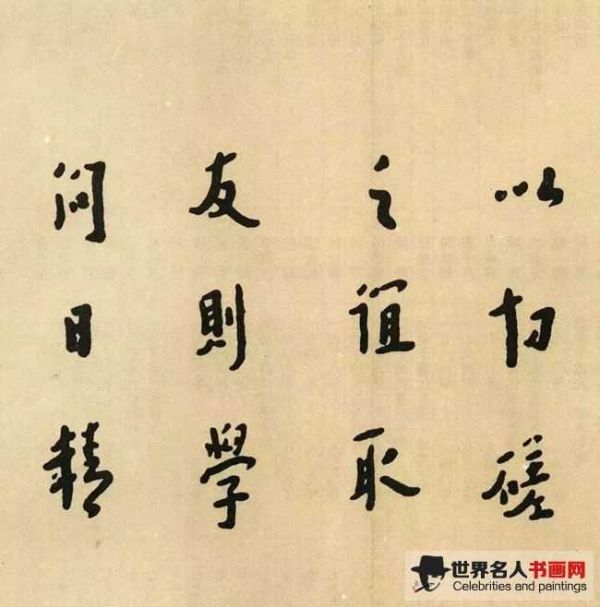 以切磋
之谊取
友則學
问日精
世界名人书画网
Celebrities and paintings